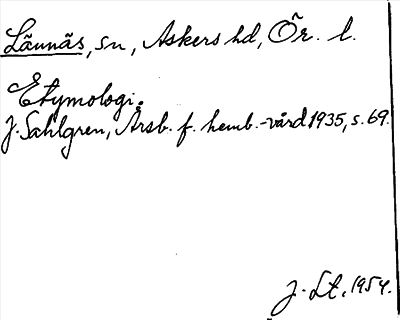 Läunäs, sn, Askers hd, Ör. l.
Etymologi.
J. Sahlgren, Årsb. f. hemb.-vård 1935, s. 69.
J. Lt. 1954.